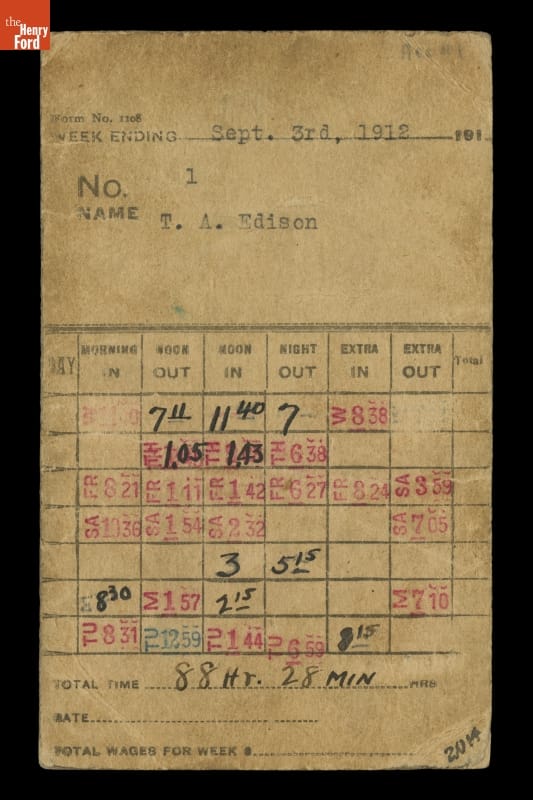 the
Henry
Ford
Form No. 1108
WEEK ENDING Sept. 3rd, 1912 191
No. 1
NAME T. A. Edison
DAY MORNING IN NOON OUT NOON IN NIGHT OUT EXTRA IN EXTRA OUT Total
7 11 11 40 7 W 8 38
TH 1.05 TH 1.43 TH 6 38
FR 8 21 FR 1 11 FR 1 42 FR 6 27 FR 8 24 SA 3 59
SA 10 36 SA 1 54 SA 2 32 SA 7 05
3 5 15
8 30 M 1 57 2 15 M 7 10
TU 8 31 TU 12 59 TU 1 44 TU 6 59 8 15
TOTAL TIME 88 Hr. 28 MIN HRS
RATE
TOTAL WAGES FOR WEEK $
2014